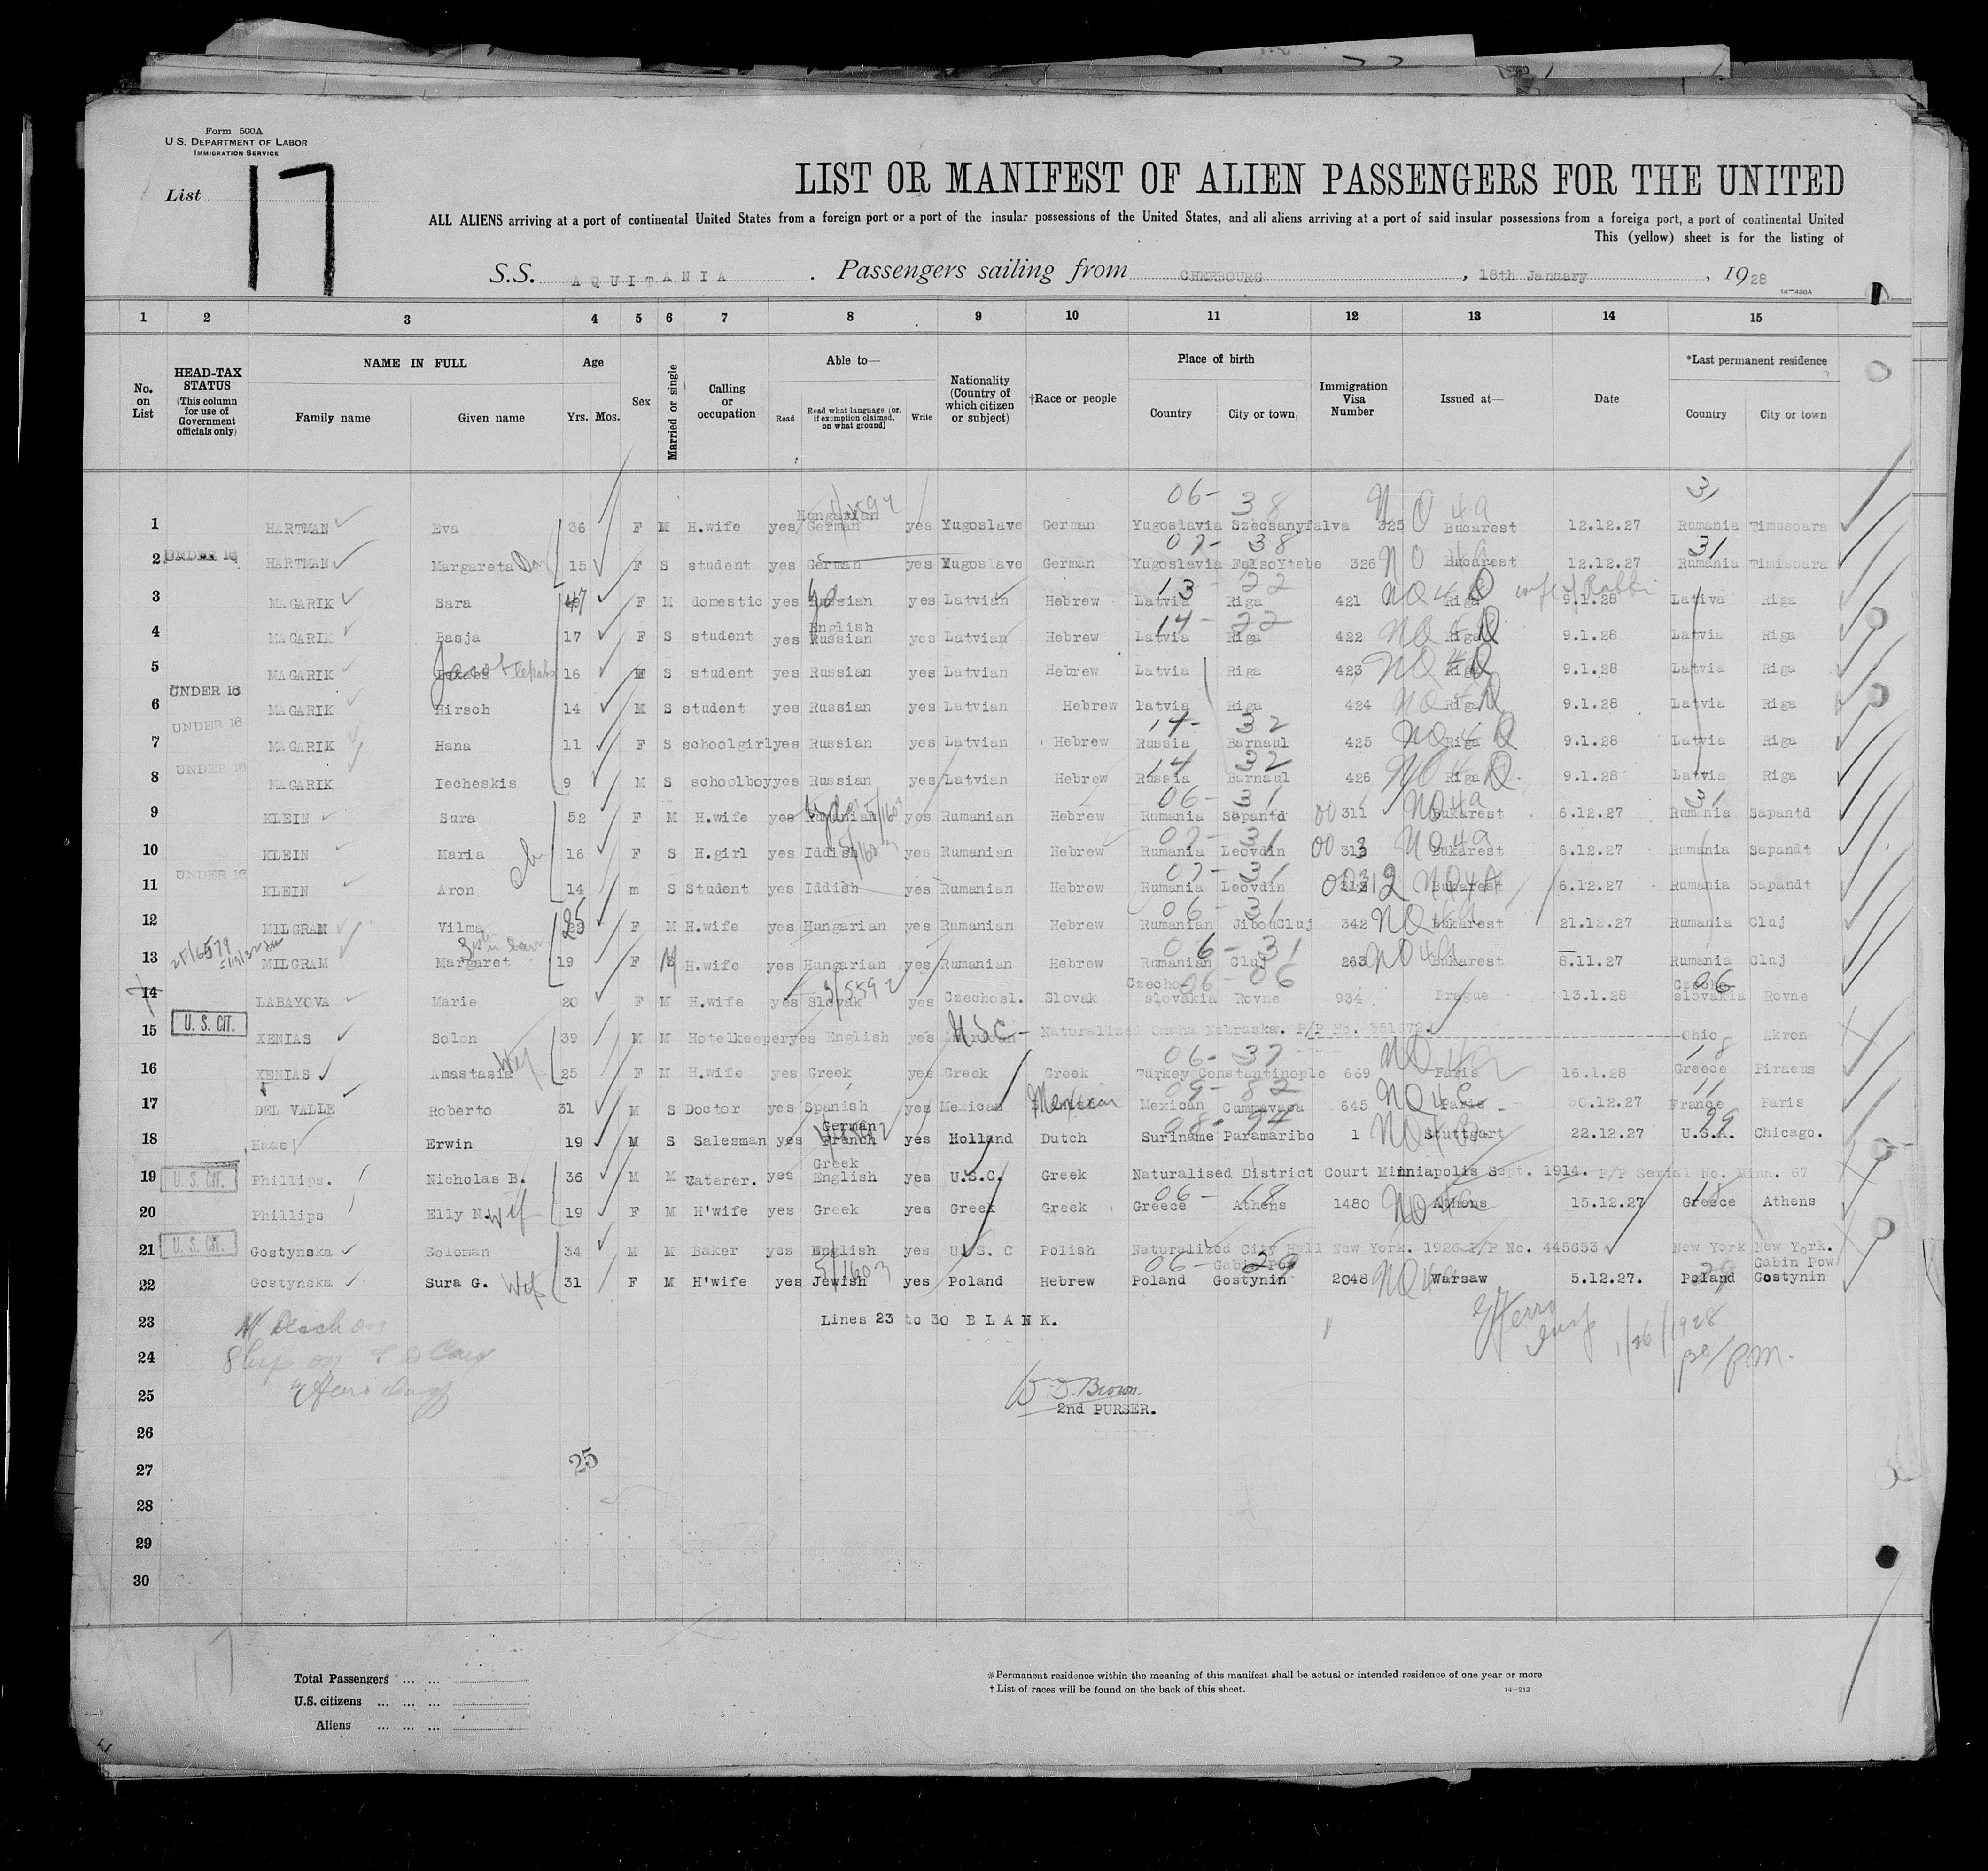 Form 500A
U. S. DEPARTMENT OF LABOR
IMMIGRATION SERVICE
List 17
LIST OR MANIFEST OF ALIEN PASSENGERS FOR THE UNITED
ALL ALIENS arriving at a port of continental United States from a foreign port or a port of the insular possessions of the United States, and all aliens arriving at a port of said insular possessions from a foreign port, a port of continental United
This (yellow) sheet is for the listing of
S.S. AQUITANIA. Passengers sailing from CHERBOURG, 18th January, 1928
14—430A
1 2 3 4 5 6 7 8 9 10 11 12 13 14 15
No. on List
HEAD-TAX STATUS (This column for use of Government officials only)
NAME IN FULL
Family name Given name
Age
Yrs. Mos.
Sex
Married or single
Calling or occupation
Able to—
Read Read what language (or, if exemption claimed, on what ground) Write
Nationality (Country of which citizen or subject)
†Race or people
Place of birth
Country City or town
Immigration Visa Number
Issued at—
Date
*Last permanent residence
Country City or town
06- 38 31
Hongarian
1 HARTMAN Eva 36 F M H.wife yes German yes Yugoslave German Yugoslavia Szecsanyfalva 325 Bucarest 12.12.27 Rumania Timusoara
07- 38 31
2 UNDER 16 HARTMAN Margareta 15 F S student yes German yes Yugoslave German Yugoslavia FelsoYtebe 326 Bucarest 12.12.27 Rumania Timisoara
13 - 22 wife of Rabbi
3 MAGARIK Sara 47 F M domestic yes Russian yes Latvian Hebrew Latvia Riga 421 Riga 9.1.28 Lativa Riga
English 14 - 22
4 MAGARIK Basja 17 F S student yes Russian yes Latvian Hebrew Latvia Riga 422 Riga 9.1.28 Latvia Riga
5 MAGARIK Jacob 16 M S student yes Russian yes Latvian Hebrew Latvia Riga 423 Riga 9.1.28 Latvia Riga
6 UNDER 16 MAGARIK Hirsch 14 M S student yes Russian yes Latvian Hebrew latvia Riga 424 Riga 9.1.28 Latvia Riga
14- 32
7 UNDER 16 MAGARIK Hana 11 F S schoolgirl yes Russian yes Latvian Hebrew Russia Barnaul 425 Riga 9.1.28 Latvia Riga
14 32
8 UNDER 16 MAGARIK Iecheskis 9 M S schoolboy yes Russian yes Latvian Hebrew Russia Barnaul 426 Riga 9.1.28 Latvia Riga
06- 31 31
9 KLEIN Sura 52 F M H.wife yes Rumanian yes Rumanian Hebrew Rumania Sepantd 00 311 Bukarest 6.12.27 Rumania Sapantd
07- 31
10 KLEIN Maria 16 F S H.girl yes Iddish yes Rumanian Hebrew Rumania Leovdin 00 313 Bukarest 6.12.27 Rumania Sapandt
07- 31
11 UNDER 16 KLEIN Aron 14 m S Student yes Iddish yes Rumanian Hebrew Rumania Leovdin 00312 Bukarest 6.12.27 Rumania Sapandt
06- 31
12 MILGRAM Vilma 25 F M H.wife yes Hungarian yes Rumanian Hebrew Rumanian JibouCluj 342 Bukarest 21.12.27 Rumania Cluj
06- 31
13 MILGRAM Margaret 19 F M H.wife yes Hungarian yes Rumanian Hebrew Rumanian Cluj 263 Bukarest 8.11.27 Rumania Cluj
Czecho- 06- 06 Czecho 06
14 LABAYOVA Marie 20 F M H.wife yes Slovak yes Czechosl. Slovak slovakia Rovne 934 Prague 13.1.28 slovakia Rovne
15 U. S. CIT. XENIAS Solon 39 M M Hotelkeeper yes English yes USC - Naturalized Omaha Nebraska. P/P No. 381672. Ohio Akron
06- 37 18
16 XENIAS Anastasia Wife 25 F M H.wife yes Greek yes Greek Greek Turkey Constantinople 669 Paris 16.1.28 Greece Piraeus
09- 82 11
17 DEL VALLE Roberto 31 M S Doctor yes Spanish yes Mexican Mexican Mexican Cummavaca 645 Paris 30.12.27 France Paris
German 08- 94 99
18 Haas Erwin 19 M S Salesman yes French yes Holland Dutch Suriname Paramaribo 1 Stuttgart 22.12.27 U.S.A. Chicago.
Greek
19 U. S. CIT. Phillips. Nicholas B. 36 M M Caterer. yes English yes U.S.C. Greek Naturalised District Court Minniapolis Sept. 1914. P/P Serial No. Minn. 67
06- 18 18
20 Phillips Elly N. Wife 19 F M H'wife yes Greek yes Greek Greek Greece Athens 1480 Athens 15.12.27 Greece Athens
21 U. S. CIT. Gostynska Soloman 34 M M Baker yes English yes U.S. C Polish Naturalized City Hall New York. 1926 P/P No. 445653 New York New York.
5/1603 06- Gabin Pow 29 Gabin Pow
22 Gostynska Sura G. Wife 31 F M H'wife yes Jewish yes Poland Hebrew Poland Gostynin 2048 Warsaw 5.12.27. Poland Gostynin
23 Lines 23 to 30 BLANK.
24
1/26/1928
25
W D. Brown.
2nd PURSER.
26
27 25
28
29
30
Total Passengers ... ...
U.S. citizens ... ... ...
Aliens ... ... ...
*Permanent residence within the meaning of this manifest shall be actual or intended residence of one year or more
† List of races will be found on the back of this sheet. 14—213